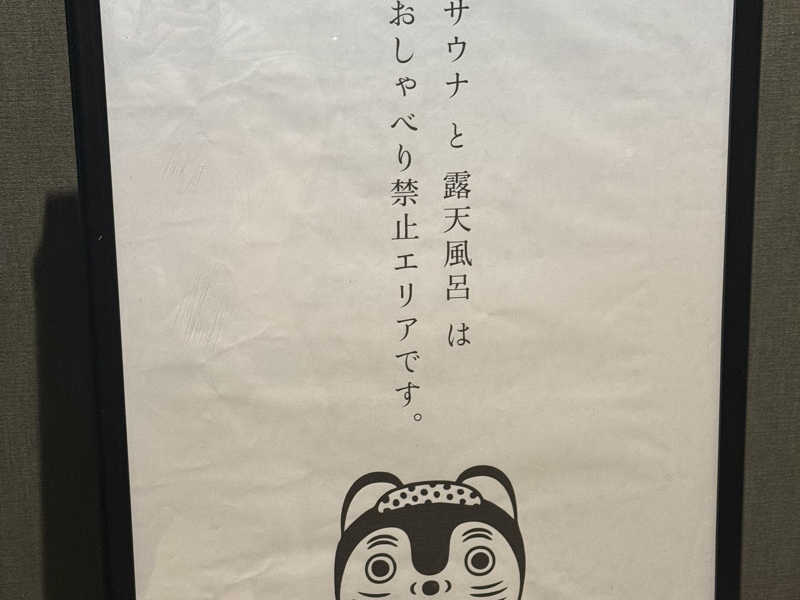 サウナと露天風呂は
おしゃべり禁止エリアです。